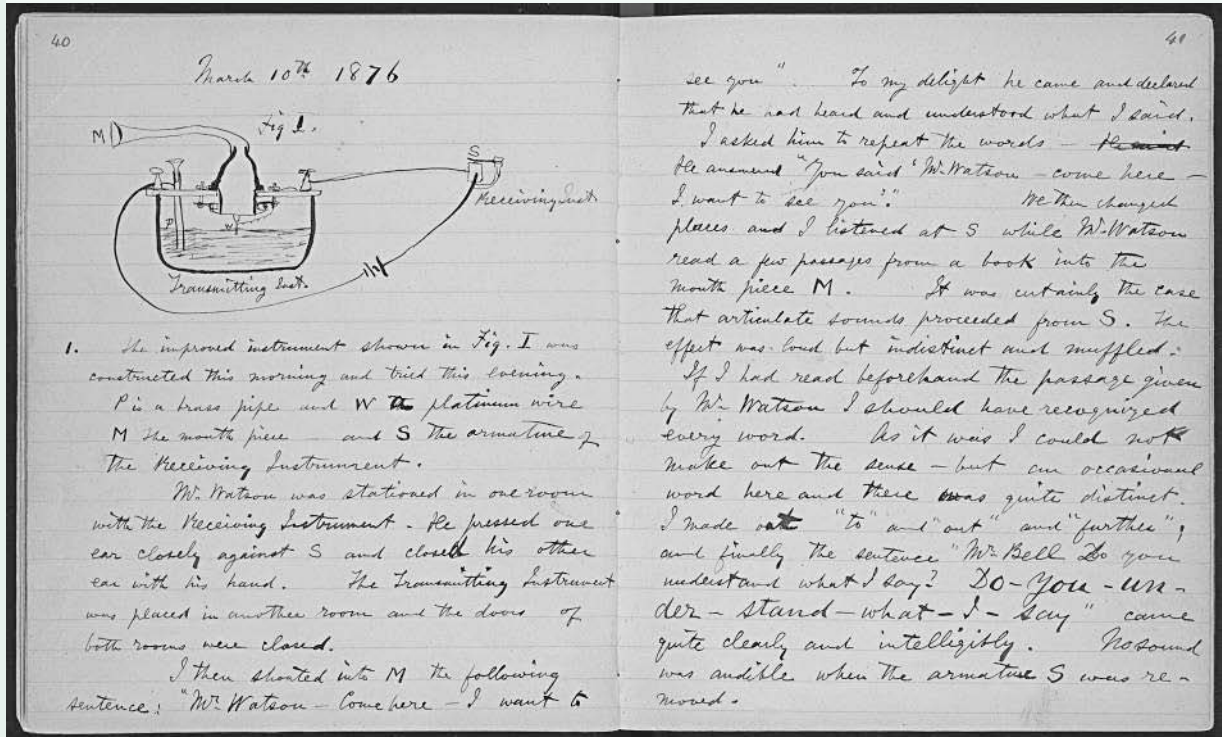 40
March 10th 1876
Fig 1.
M
S
Receiving Inst.
P
W
Transmitting Inst.
1. The improved instrument shown in Fig. I was
constructed this morning and tried this evening.
P is a brass pipe and W a platinum wire
M the mouth piece and S the armature of
the Receiving Instrument.
Mr. Watson was stationed in one room
with the Receiving Instrument. He pressed one
ear closely against S and closed his other
ear with his hand. The Transmitting Instrument
was placed in another room and the doors of
both rooms were closed.
I then shouted into M the following
sentence: "Mr. Watson – Come here – I want to
41
see you". To my delight he came and declared
that he had heard and understood what I said.
I asked him to repeat the words –
He answered "You said 'Mr. Watson – come here –
I want to see you'." We then changed
places and I listened at S while Mr. Watson
read a few passages from a book into the
mouth piece M. It was certainly the case
that articulate sounds proceeded from S. The
effect was loud but indistinct and muffled.
If I had read beforehand the passage given
by Mr. Watson I should have recognized
every word. As it was I could not
make out the sense – but an occasional
word here and there was quite distinct.
I made out "to" and "out" and "further";
and finally the sentence "Mr. Bell Do you
understand what I say? Do – you – un –
der – stand – what – I – say" came
quite clearly and intelligibly. No sound
was audible when the armature S was re –
moved.